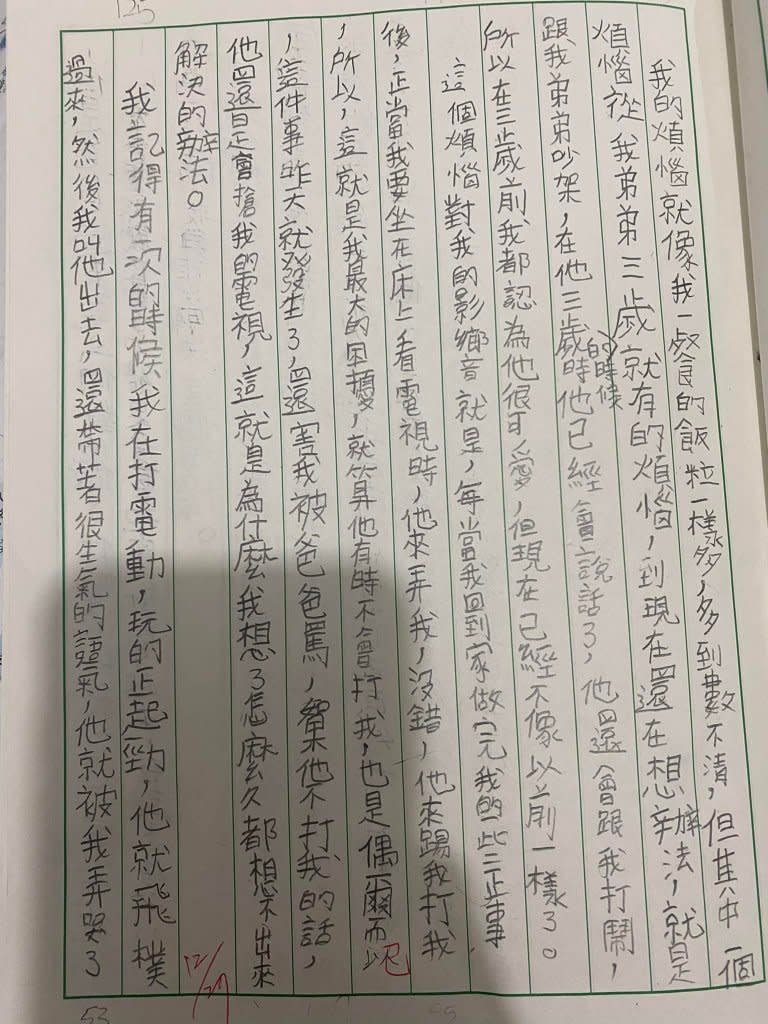 125
我的煩惱就像我一餐的飯粒一樣多,多到數不清,但其中一個
煩惱從我弟弟三歲就有的煩惱,到現在還在想辦法,就是
跟我弟弟吵架,在他三歲的時候時他已經會說話了,他還會跟我打鬧,
所以在三歲前我都認為他很可愛,但現在已經不像以前一樣了。
這個煩惱對我的影響就是,每當我回到家做完我的一些正事
後,正當我要坐在床上看電視時,他來弄我,沒錯,他來踢我打我
,所以,這就是我最大的困擾,就算他有時不會打我,也是偶爾而已
,這件事昨天就發生了,還害我被爸爸罵,幫他不打我的話,
他還是會搶我的電視,這就是為什麼我想了怎麼久都想不出來
解決的辦法。
12/27
我記得有一次的時候我在打電動,玩的正起勁,他就飛樸
過來,然後我叫他出去,還帶著很生氣的語氣,他就被我弄哭了
53